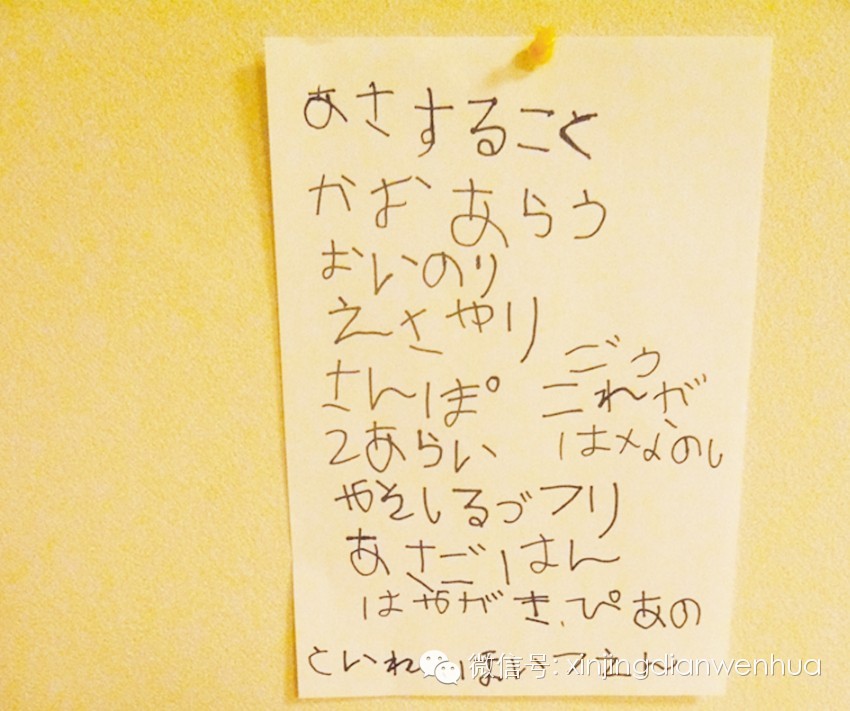 あさすること
かおあらう
おいのり
えさやり
さんぽ
ごう
これが
はなのし
2あらい
みそしるづフリ
あさごはん
はみがき、ぴあの
といれ
微信号: xinjingdianwenhua